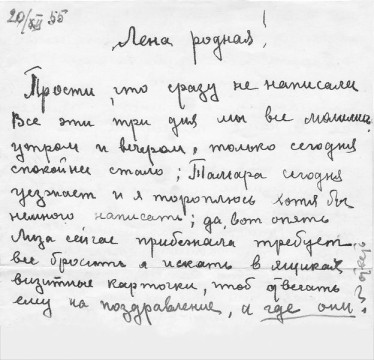 20/XII 55
Лена родная!
Прости, что сразу не написала
Все эти три дня мы все молились
утром и вечером, только сегодня
спокойнее стало; Тамара сегодня
уезжает и я тороплюсь хотя бы
немного написать; да, вот опять
Лиза сейчас прибежала требует
все бросить и искать в ящиках
визитные карточки, чтоб отвечать
ему на поздравление, а где они?